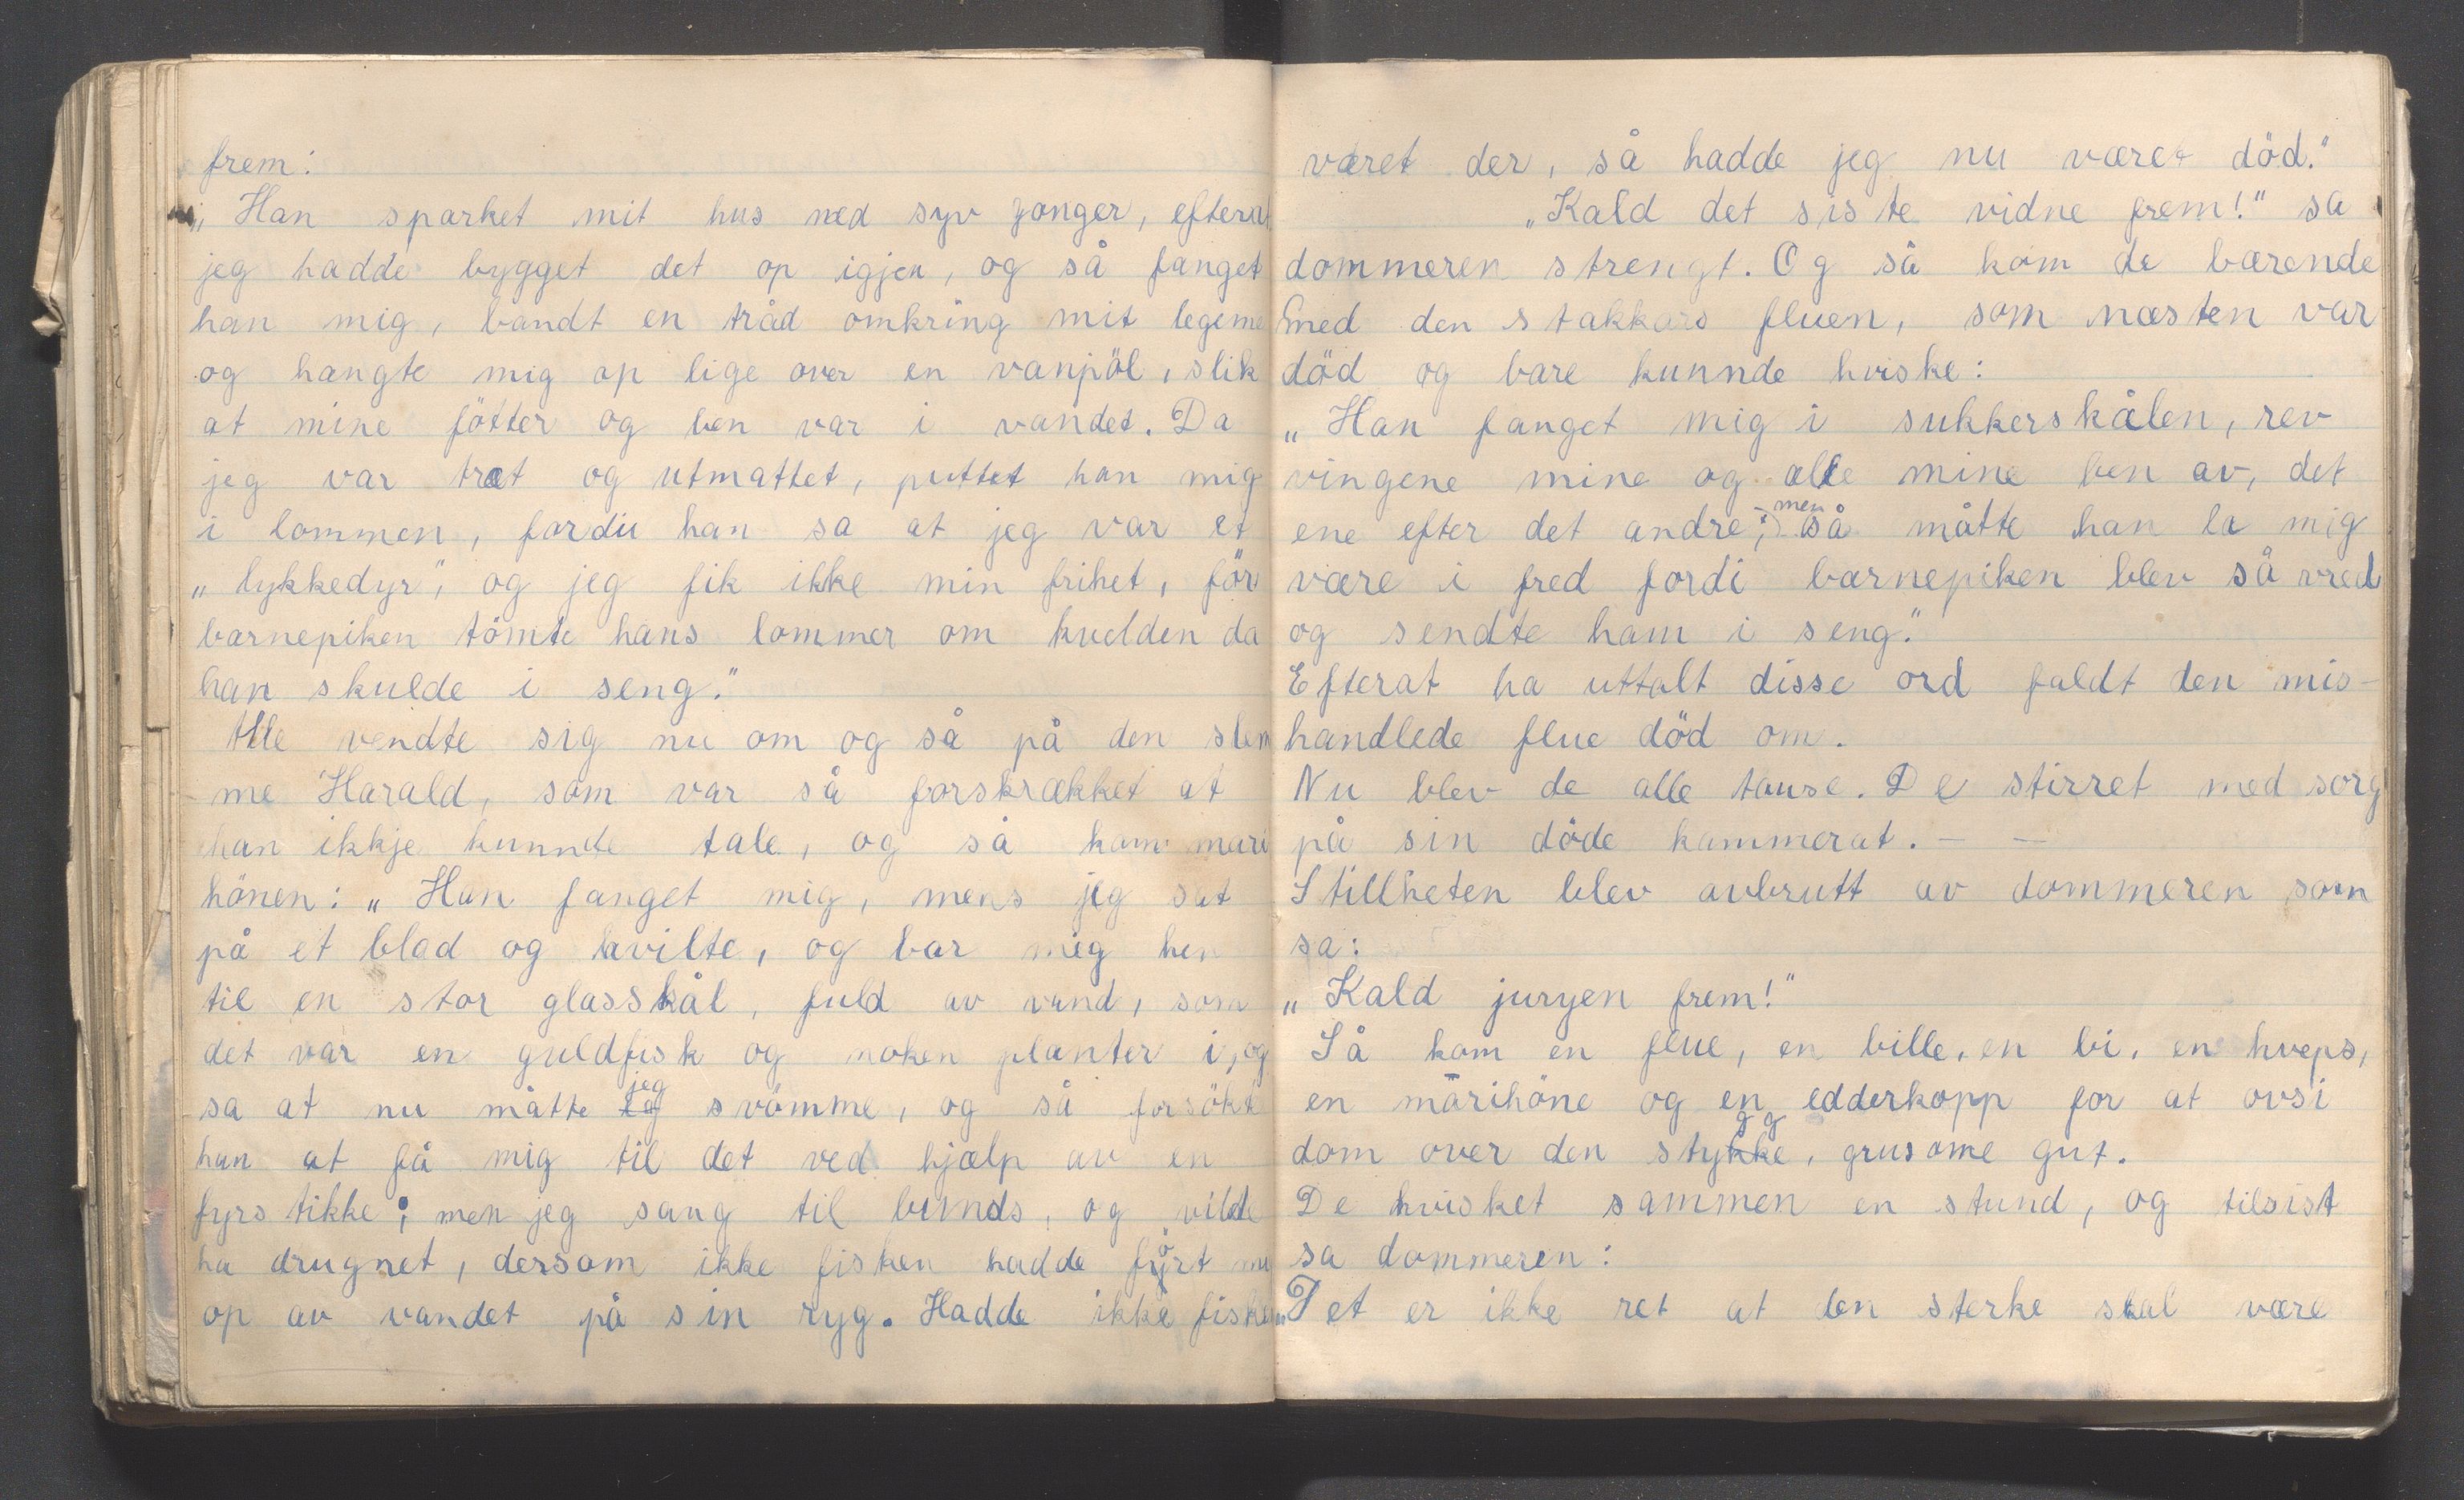 frem:
„Han sparket mit hus ned syv ganger, efterat
jeg hadde bygget det op igjen, og så fanget
han mig, bandt en tråd omkring mit legeme
og hangte mig op lige over en vanpöl, slik
at mine fötter og ben var i vandet. Da
jeg var træt og utmattet, puttet han mig
i lommen, fordii han sa at jeg var et
„lykkedyr", og jeg fik ikke min frihet, för
barnepiken tömte hans lommer om kvelden da
han skulde i seng."
Alle vendte sig nu om og så på den slem
me Harald, som var så forskrækket at
han ikkje kunnde tale, og så kom mari
hönen: „Han fanget mig, mens jeg sat
på et blad og hvilte, og bar mig hen
til en stor glasskål, fuld av vand, som
det var en guldfisk og noken planter i, og
sa at nu måtte jeg svömme, og så forsökte
han at få mig til det ved hjælp av en
fyrstikke; men jeg sang til bunds, og vilde
ha drugnet, dersom ikke fisken hadde fört mi
op av vandet på sin ryg. Hadde ikke fisken
været der, så hadde jeg nu været död."
„Kald det siste vidne frem!" sa
dommeren strengt. Og så kom de bærende
med den stakkars fluen, som næsten var
död og bare kunnde hviske:
„Han fanget mig i sukkerskålen, rev
vingene mine og alle mine ben av, det
ene efter det andre; men så måtte han la mig
være i fred fordi barnepiken blev så vred
og sendte ham i seng."
Efterat ha uttalt disse ord faldt den mis-
handlede flue död om.
Nu blev de alle tause. De stirret med sorg
på sin döde kammerat. — —
Stillheten blev avbrutt av dommeren som
sa:
„Kald juryen frem!"
Så kom en flue, en bille, en bi, en hveps,
en marihöne og en edderkopp for at avsi
dom over den stygge, grusome gut.
De hvisket sammen en stund, og tilsist
sa dommeren:
„Det er ikke ret at den sterke skal være